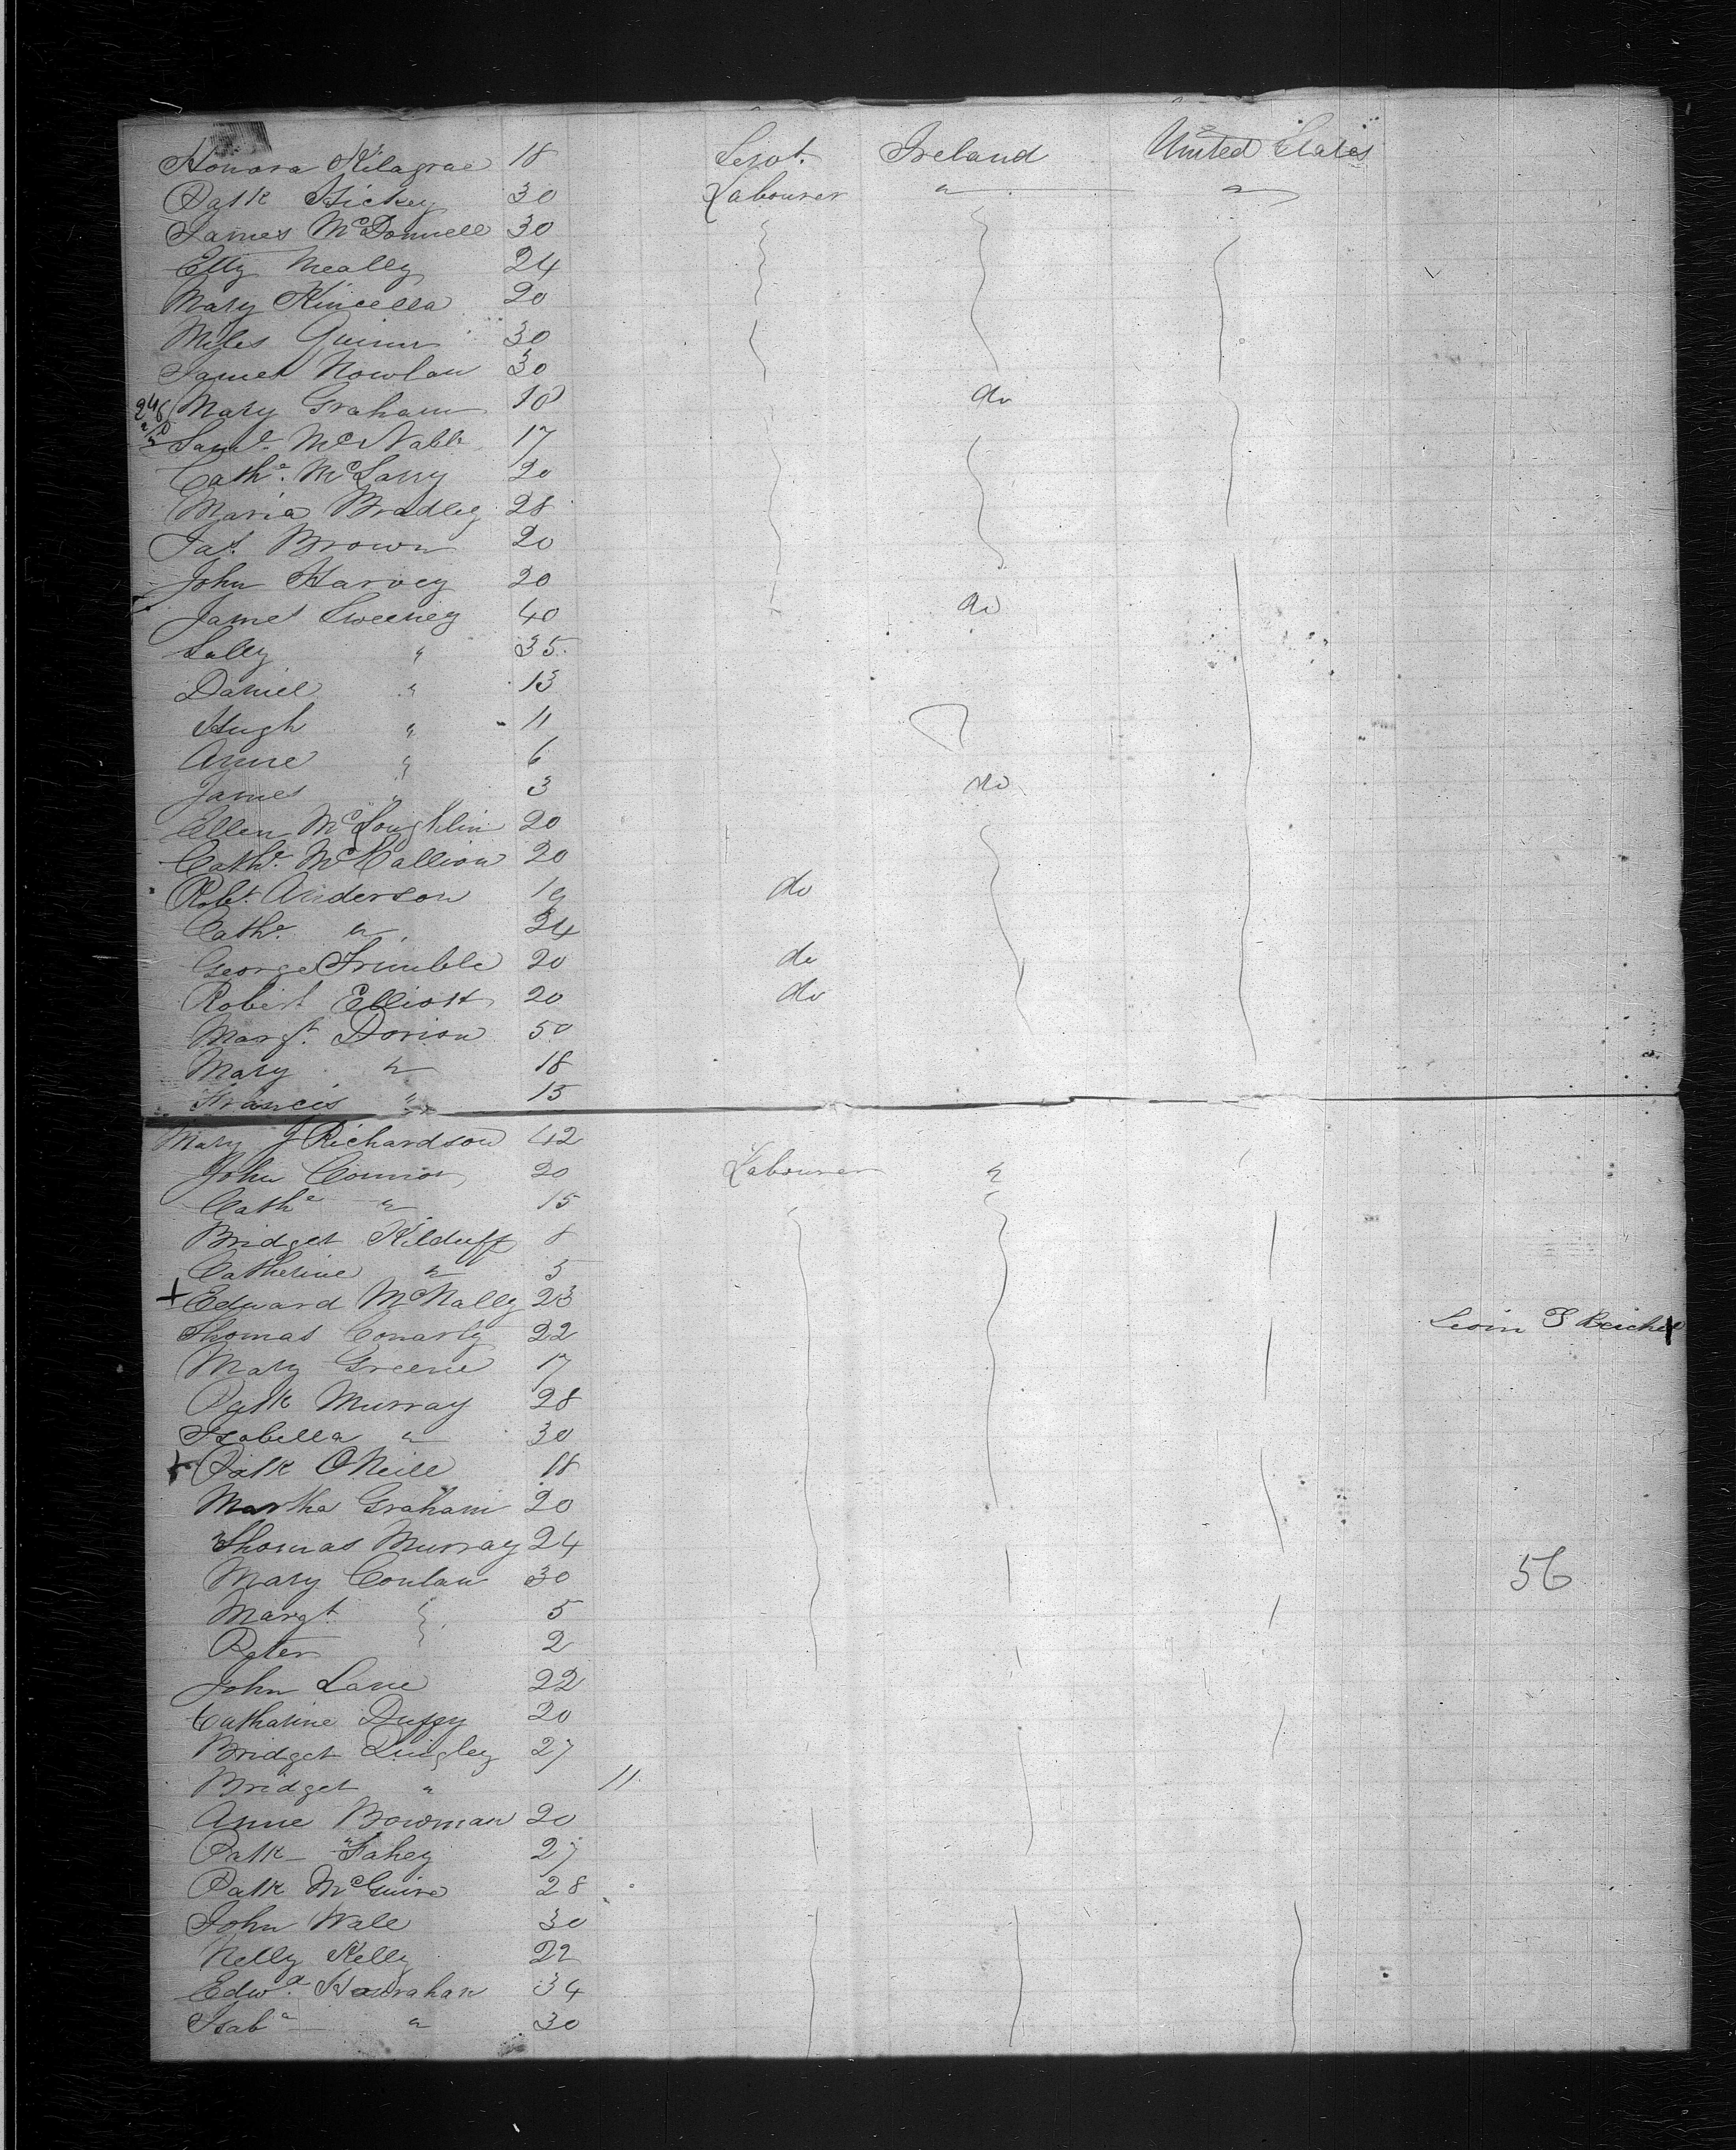 Honora Kilagrae 18 Sept. Ireland United States
Patk Hickey 30 Labourer " "
James McDonnell 30
Elly Meally 24
Mary Kincella 20
Miles Quinn 30
James Nowlan 30
246 Mary Graham 18 do
Saml. McNabb 17
Cathe. McLarry 20
Maria Bradley 28
Jas. Brown 20
John Harvey 20
James Sweeney 40 do
Sally " 35
Daniel " 13
Hugh " 11
Anne " 6
James " 3 do
Ellen McLoughlin 20
Cathe. McCallion 20
Robt. Anderson 19 do
Cathe. " 24
George Trimble 20 do
Robert Elliott 20 do
Margt. Dorion 50
Mary " 18
Francis " 15
Mary J Richardson 42
John Connor 20 Labourer "
Cathe " 15
Bridget Kilduff 8
Catherine " 5
+ Edward McNally 23
Thomas Conarty 22 Levin T Reichel
Mary Greene 17
Patk Murray 28
Isabella " 30
+ Patk ONeill 18
Martha Graham 20
Thomas Murray 24
Mary Conlan 30 56
Margt 5
Peter 2
John Lane 22
Catharine Duffy 20
Bridget Quigley 27
Bridget " 11
Anne Bowman 20
Patk Fahey 27
Patk McGuire 28
John Wall 30
Nelly Kelly 22
Edwd. Hanrahan 34
Isaba " 30